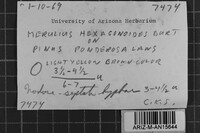 1-10-69 7474
University of Arizona Herbarium
MERULIUS HEXAGONOIDES BURT
ON
PINUS PONDEROSA LAWS
LIGHT YELLOW BROWN COLOR
3½-4½ u
6-7
Nodose-septate hyphae 3-4½ u
7474 C.E.S.
ARIZ-M-AN15844